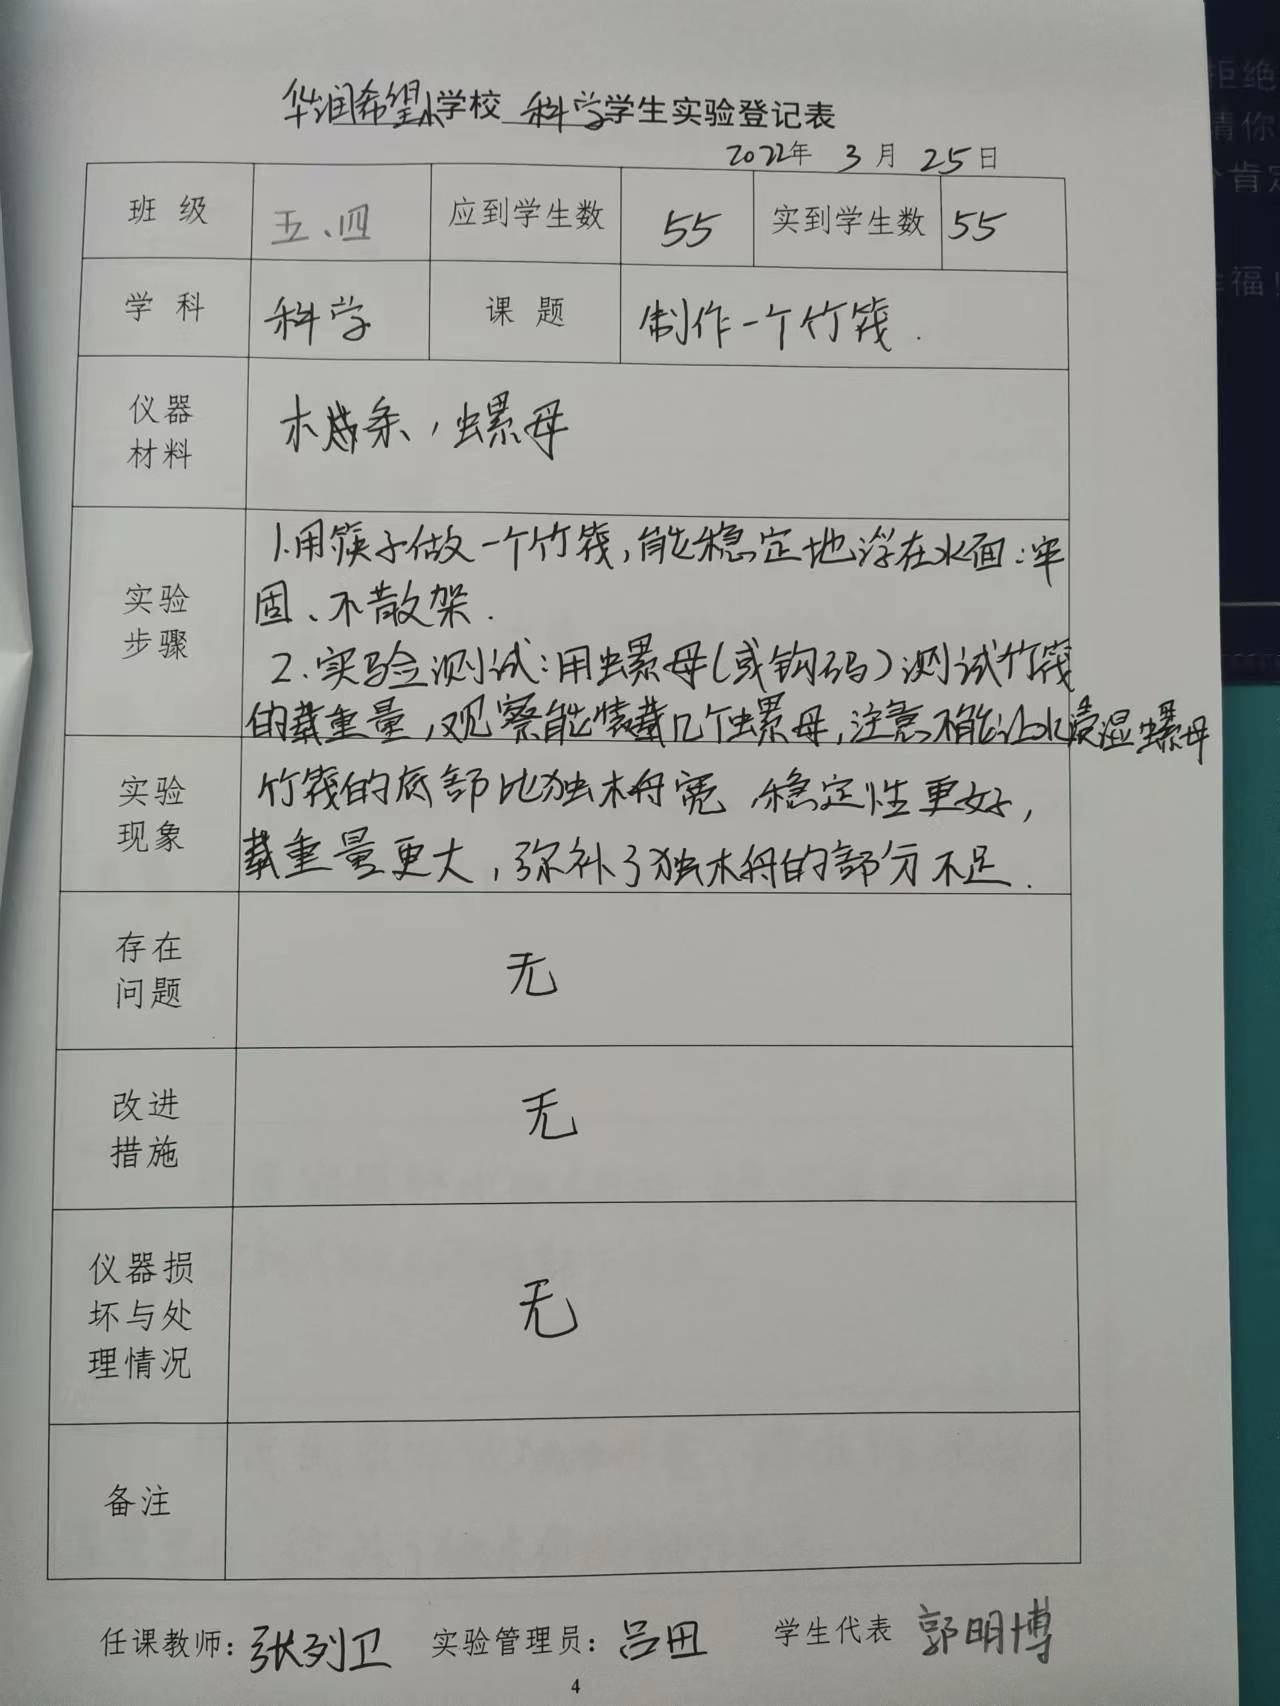 华润希望小学校 科学学生实验登记表
2022年 3月 25日
班级 五、四 应到学生数 55 实到学生数 55
学科 科学 课题 制作一个竹筏.
仪器
材料
木条，螺母
实验
步骤
1.用筷子做一个竹筏，能稳定地浮在水面：牢
固、不散架.
2.实验测试：用螺母(或钩码)测试竹筏
的载重量，观察能装载几个螺母，注意不能让水浸湿螺母
实验
现象
竹筏的底部比独木舟宽，稳定性更好，
载重量更大，弥补了独木舟的部分不足.
存在
问题
无
改进
措施
无
仪器损
坏与处
理情况
无
备注
任课教师：张列卫 实验管理员：吕田 学生代表 郭明博
4
拒绝
请你
肯定
福